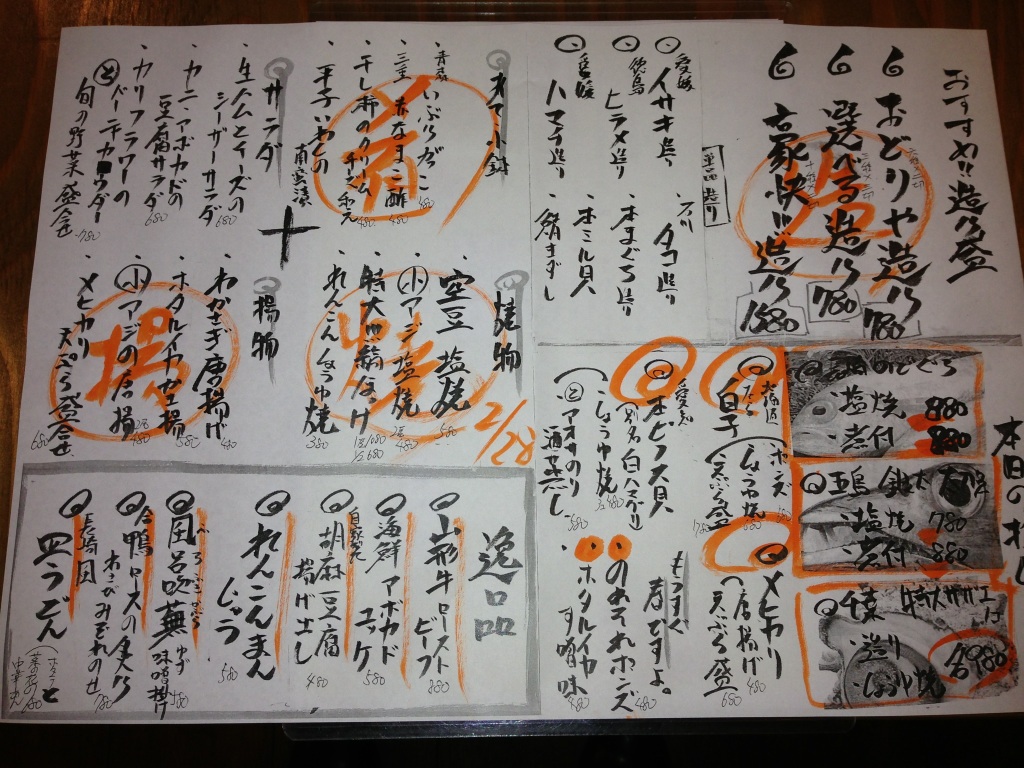 おすすめ!!造り盛
おどりや造り 780
選べる造り 780
豪快!!造り 1580
単品造り
愛媛 イサキ造り
徳島 ヒラメ造り
愛媛 ハマチ造り
タコ造り
本まぐろ造り
本ミル貝
鯖きずし
オて小鉢
青森 いぶりがっこ
三重 赤なまこ酢 480
干し柿のクリームチーズ和え 480
平子いわしの南蛮漬
肴
サラダ
生ハムとチーズのシーザーサラダ 680
カニ・アボカドの豆腐サラダ 680
カリフラワーの
バーニャカウダー
旬の野菜盛合せ 780
焼物
空豆塩焼 580
小アジ塩焼 480
特大川縞ほっけ
れんこんしょうゆ焼 380
焼
2/28
揚物
わかさぎ唐揚げ 480
ホタルイカ唐揚 580
小アジの唐揚
メヒカリ天ぷら盛合せ 680
揚
本日の
のどぐろ
塩焼 880
煮付 880
五島
塩焼 780
煮付 880
千葉 特大サザエ
造り
しょうゆ焼
各980
たら白子
ポンズ
しょうゆ焼
天ぷら盛
愛知 本ビノス貝
別名 白ハマグリ
しょうゆ焼 480
アオサのり酒蒸し 580
メヒカリ
唐揚げ 480
天ぷら盛 680
もうすぐ
春ですよ。
のれそれポンズ 480
ホタルイカ
す味噌 480
逸品
山形牛ローストビーフ 880
海鮮アボカドユッケ 580
自家製 胡麻豆腐揚げ出し 480
れんこんまんじゅう 580
風呂吹蕪 ゆず味噌掛 480
合鴨ロースの炙り
わさびみぞれのせ 780
長崎風
皿うどん